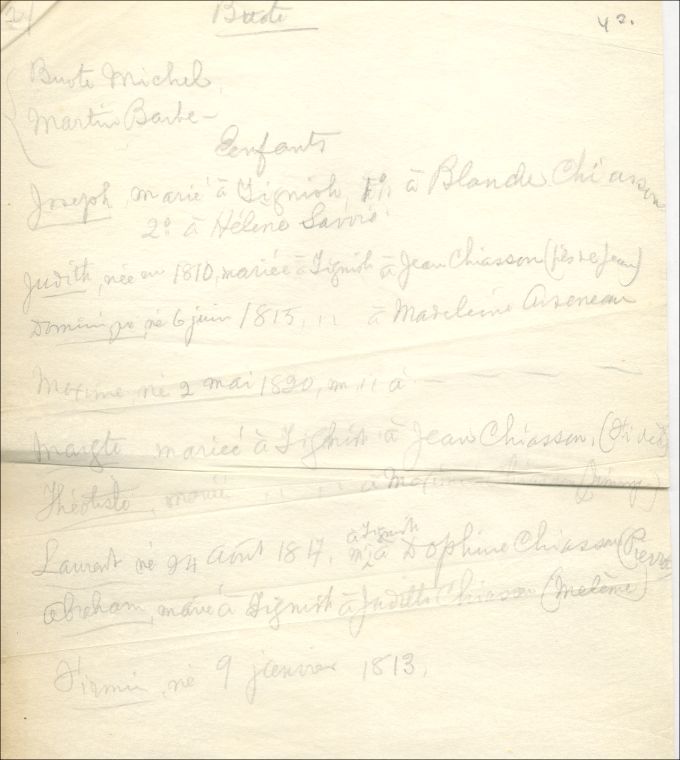 2) Buote 42.
Buote Michel,
Martin Barbe -
Enfants
Joseph, marié à Tignish, 1º. à Blande Chiasson
2º à Hélène Savoie.
Judith, née en 1810, mariée à Tignish à Jean Chiasson (fils de Jean)
Dominique, né 6 juin 1815, " à Madeleine Arseneau
Maxime né 2 mai 1820, m. " à
Margte mariée à Tignish à Jean Chiasson,
Théotiste, mariée " " à Maxime Chiasson
à Tignish
Laurent né 24 Août 1817, m. à Dophine Chiasson (Pierre
Abraham, marié à Tignish à Judith Chiasson
Firmin, né 9 janvier 1813,